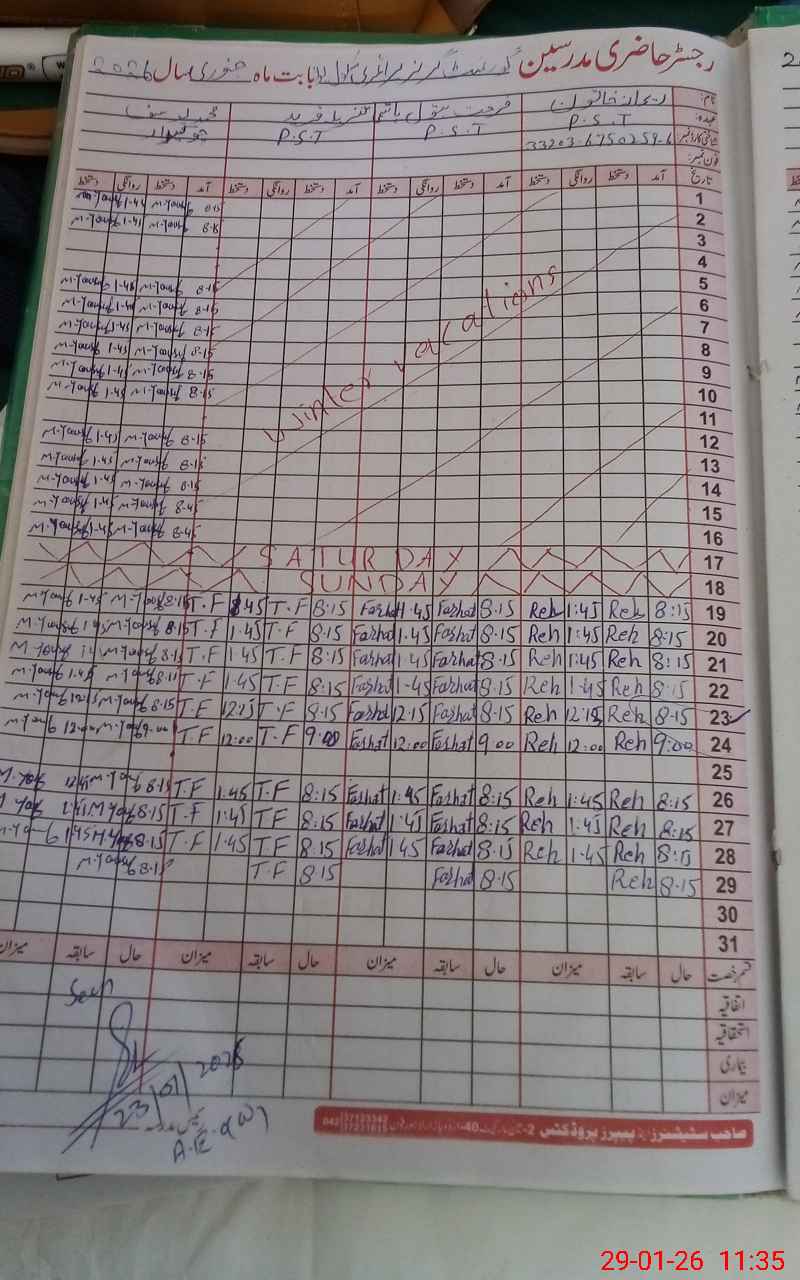 رجسٹر حاضری مدرسین گورنمنٹ گرلز پرائمری سکول بابت ماہ جنوری سال 2026
نام: ریحانہ خاتون فرحت بتول ہاشمی محمد یوسف
عہدہ: P.S.T P.S.T P.S.T چوکیدار
شناختی کارڈ نمبر 33203-6750259-6
فون نمبر:
تاریخ آمد دستخط روانگی دستخط آمد دستخط روانگی دستخط آمد دستخط روانگی دستخط آمد دستخط روانگی دستخط
M-Yousf 1-45 M-Yousf 8-15 1
M-Yousf 1-45 M-Yousf 8-15 2
3
4
M-Yousf 1-45 M-Yousf 8-15 5
M-Yousf 1-45 M-Yousf 8-15 6
M-Yousf 1-45 M-Yousf 8-15 7
M-Yousf 1-45 M-Yousf 8-15 8
M-Yousf 1-45 M-Yousf 8-15 9
M-Yousf 1-45 M-Yousf 8-15 10
winter vacations
11
M-Yousf 1-45 M-Yousf 8-15 12
M-Yousf 1-45 M-Yousf 8-15 13
M-Yousf 1-45 M-Yousf 8-15 14
M-Yousf 1-45 M-Yousf 8-45 15
M-Yousf 1-45 M-Yousf 8-45 16
SATURDAY 17
SUNDAY 18
M-Yousf 1-45 M-Yousf 8-15 T.F 1-45 T.F 8:15 Farhat 1-45 Farhat 8-15 Reh 1:45 Reh 8:15 19
M-Yousf 1-45 M-Yousf 8-15 T.F 1-45 T.F 8:15 Farhat 1-45 Farhat 8-15 Reh 1:45 Reh 8:15 20
M-Yousf M-Yousf 8-15 T.F 1-45 T.F 8:15 Farhat 1-45 Farhat 8-15 Reh 1:45 Reh 8:15 21
M-Yousf 1-45 M-Yousf 8-15 T.F 1-45 T.F 8:15 Farhat 1-45 Farhat 8-15 Reh 1-45 Reh 8:15 22
M-Yousf 12:15 M-Yousf 8-15 T.F 12:15 T.F 8:15 Farhat 12.15 Farhat 8-15 Reh 12:15 Reh 8-15 23
M-Yousf 12:00 M-Yousf 9-00 T.F 12:00 T.F 9:00 Farhat 12:00 Farhat 9.00 Reh 12:00 Reh 9:00 24
25
M-Yousf 12:45 M-Yousf 8-15 T.F 1-45 T.F 8:15 Farhat 1-45 Farhat 8:15 Reh 1:45 Reh 8:15 26
M-Yousf 1:45 M-Yousf 8-15 T.F 1:45 TF 8:15 Farhat 1:45 Farhat 8:15 Reh 1:45 Reh 8:15 27
M-Yousf 1:45 M-Yousf 8-15 T.F 1-45 TF 8.15 Farhat 1.45 Farhat 8:15 Reh 1-45 Reh 8:15 28
M-Yousf 8-15 T.F 8.15 Farhat 8-15 Reh 8-15 29
30
31
قسم رخصت حال سابقہ میزان حال سابقہ میزان حال سابقہ میزان حال سابقہ میزان
اتفاقیہ
استحقاقیہ
بیماری
میزان
Seen
23/01/2026
A.E.O(W)
صاحب سٹیشنرز اینڈ پیپرز پروڈکٹس
042 37123342
37231615
29-01-26 11:35